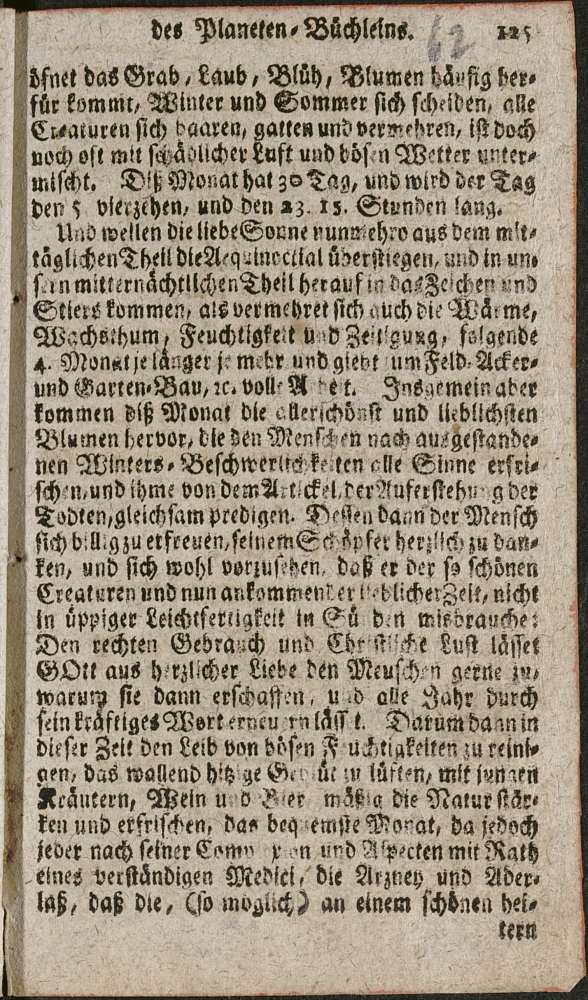 des Planeten-Büchleins. 62 125
öfnet das Grab, Laub, Blüh, Blumen häufig her-
für kommt, Winter und Sommer sich scheiden, alle
Creaturen sich paaren, gatten und vermehren, ist doch
noch oft mit schädlicher Luft und bösen Wetter unter-
mischt. Diß Monat hat 30 Tag, und wird der Tag
den 5 vierzehen, und den 23. 15. Stunden lang.
Und weilen die liebe Sonne nunmehro aus dem mit-
täglichen Theil die Aequinoctial überstiegen, und in un-
sern mitternächtlichen Theil herauf in das Zeichen und
Stiers kommen, als vermehret sich auch die Wärme,
Wachsthum, Feuchtigkeit und Zeitigung, folgende
4. Monat je länger je mehr und giebt um Feld-Acker-
und Garten-Bau, ꝛc. volle Arbeit. Insgemein aber
kommen diß Monat die allerschönst und lieblichsten
Blumen hervor, die den Menschen nach ausgestande-
nen Winters-Beschwerlichkeiten alle Sinne erfri-
schen, und ihme von dem Artickel der Auferstehung der
Todten, gleichsam predigen. Dessen dann der Mensch
sich billig zu erfreuen, seinem Schöpfer herzlich zu dan-
ken, und sich wohl vorzusehen, daß er der so schönen
Creaturen und nun ankommender lieblicher Zeit, nicht
in üppiger Leichtfertigkeit in Sünden misbrauche:
Den rechten Gebrauch und Christliche Lust lässet
GOtt aus herzlicher Liebe den Menschen gerne zu,
warum sie dann erschaffen, und alle Jahr durch
sein kräftiges Wort erneuern lässt. Darum dann in
dieser Zeit den Leib von bösen Feuchtigkeiten zu reini-
gen, das wallend hitzige Geblüt zu lüften, mit jungen
Kräutern, Wein und Bier mäßig die Natur stär-
ken und erfrischen, das bequemste Monat, da jedoch
jeder nach seiner Complexion und Aspecten mit Rath
eines verständigen Medici, die Arzney und Ader-
laß, daß die, (so möglich) an einem schönen hei-
tern